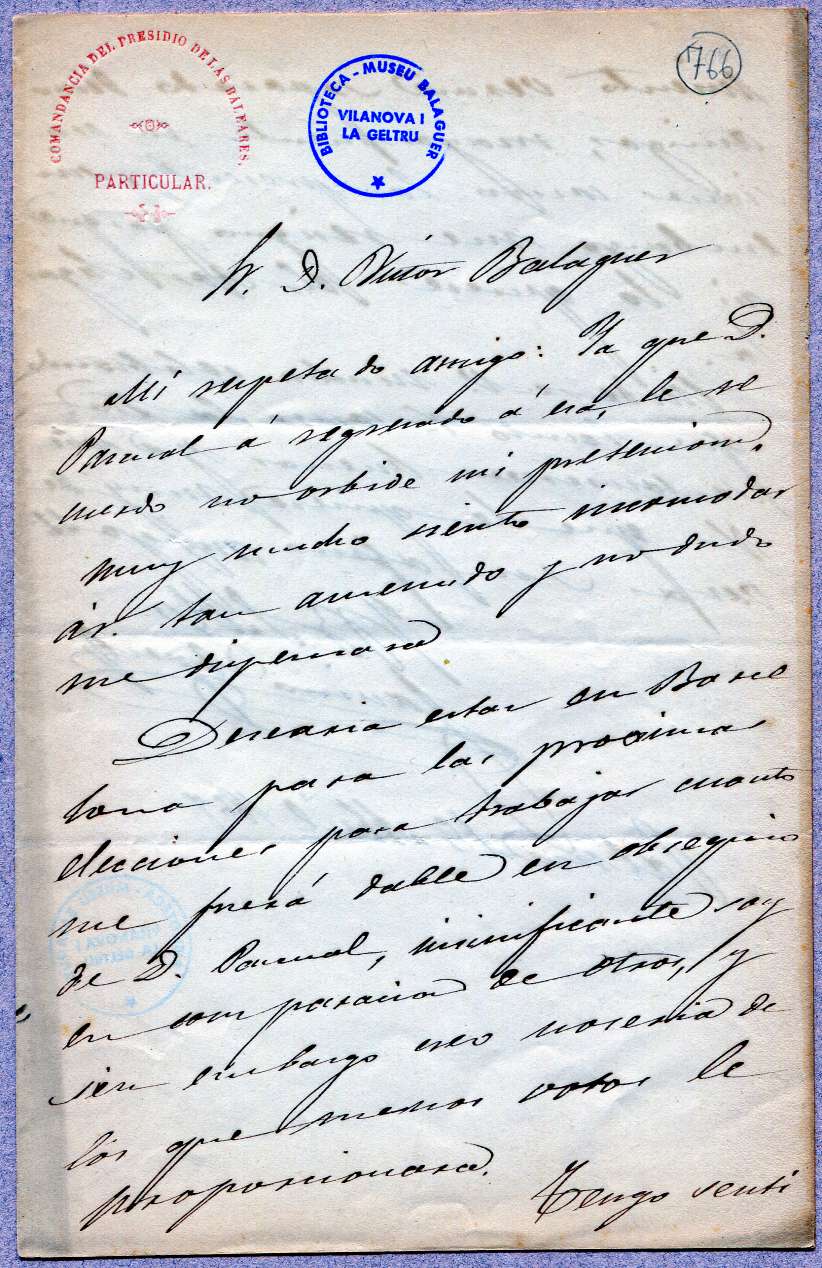 COMANDANCIA DEL PRESIDIO DE LAS BALEARES.
PARTICULAR.
BIBLIOTECA - MUSEU BALAGUER
VILANOVA I
LA GELTRU
766
Sr. D. Victor Balaguer
Mi respetado amigo: Ya que D.
Pascual á regresado á esá, le re
cuerdo no orbide mi pretension,
muy mucho siento incomodar
á V. tan amenudo y no dudo
me dispensara
Desearia estar en Barce
lona para las proximas
elecciones para trabajar cuanto
me fuerá dable en obsequio
de D. Pascual, insinificante soy
en comparacion de otros, y
sin embargo creo noseria de
los que menos votos le
proporcionara.
Tengo senti